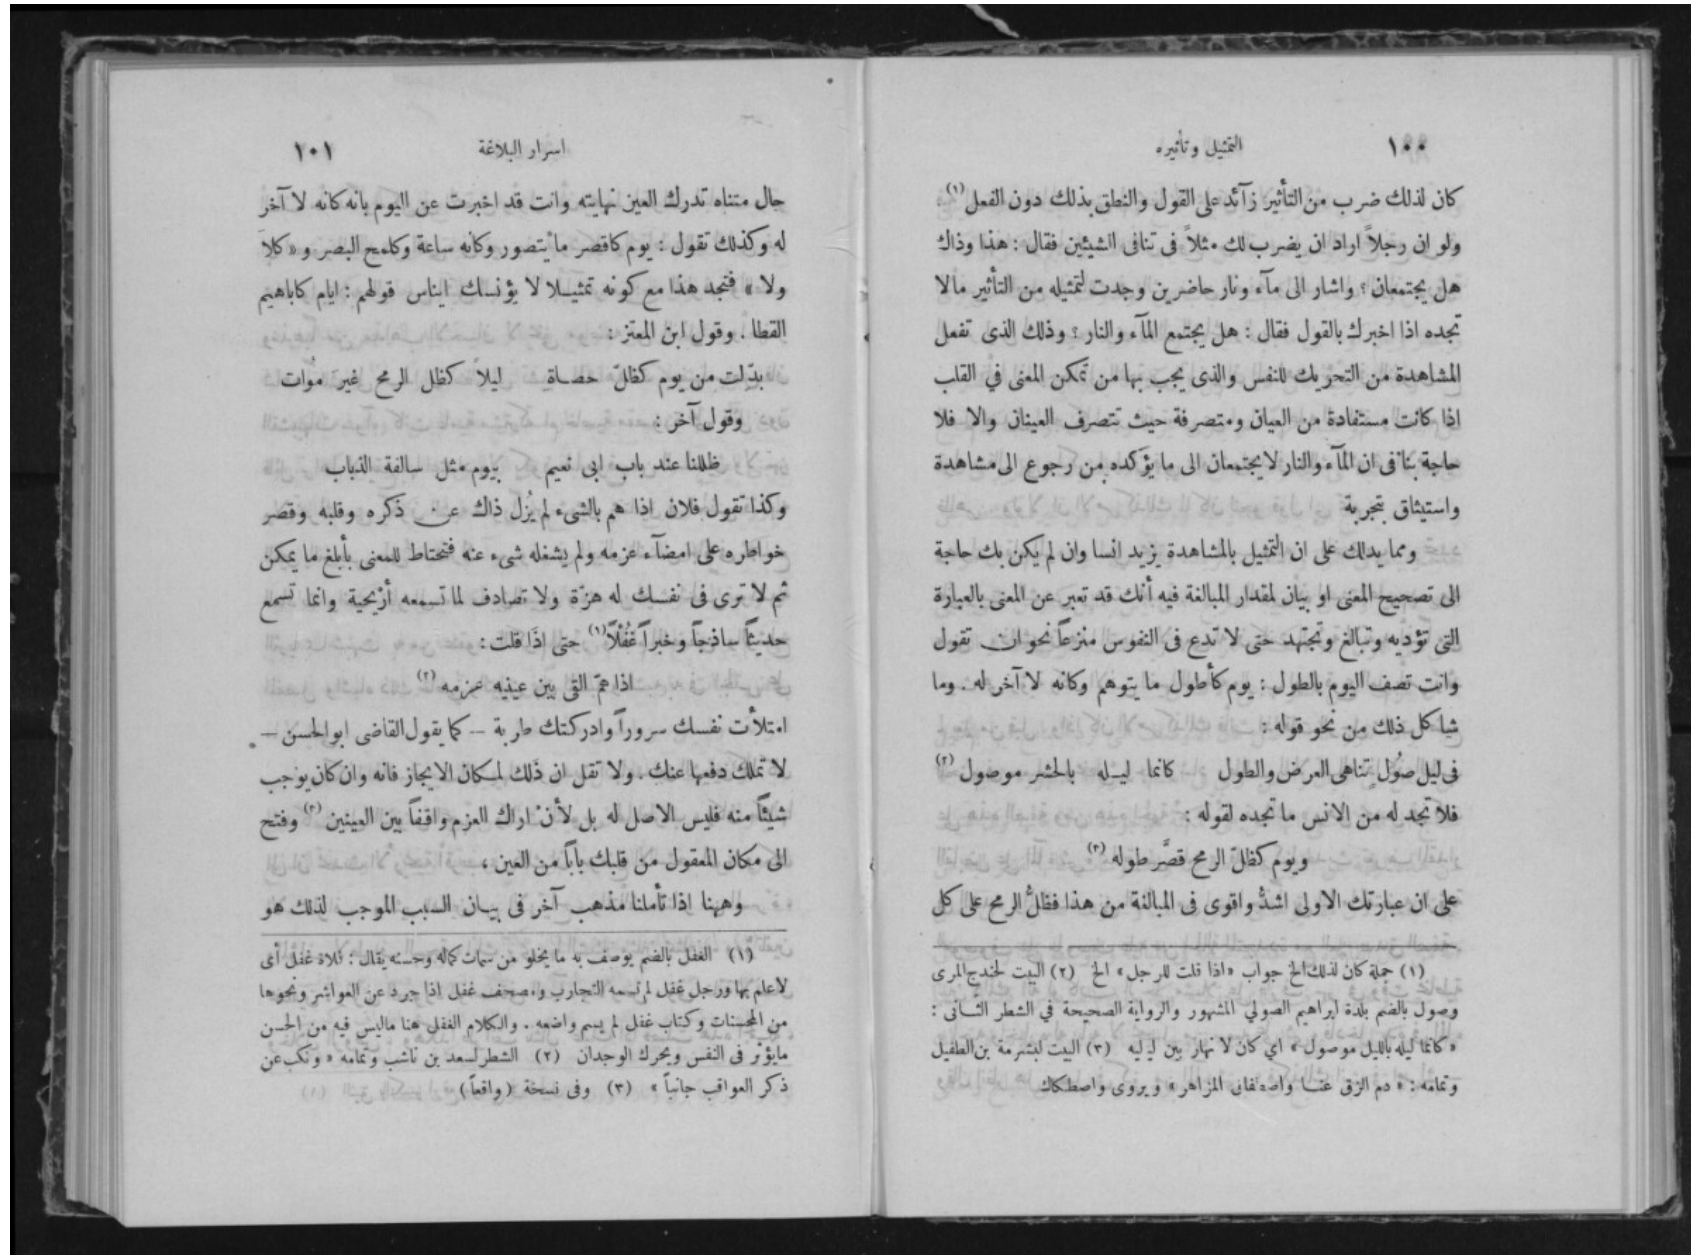 ١٠٠ التمثيل وتأثيره
كان لذلك ضرب من التأثير زآئد على القول والنطق بذلك دون الفعل (١)
ولو ان رجلاً اراد ان يضرب لك مثلاً فى تنافى الشيئين فقال : هذا وذاك
هل يجتمعان ؟ واشار الى مآء ونار حاضرين وجدت لتمثيله من التأثير مالا
تجده اذا اخبرك بالقول فقال : هل يجتمع المآء والنار ؟ وذلك الذى تفعل
المشاهدة من التحريك للنفس والذى يجب بها من تمكن المعنى في القلب
اذا كانت مستفادة من العيان ومتصرفة حيث تتصرف العينان والا فلا
حاجة بنا فى ان المآء والنار لا يجتمعان الى ما يؤكده من رجوع الى مشاهدة
واستيثاق بتجربة
ومما يدلك على ان التمثيل بالمشاهدة يزيد انسا وان لم يكن بك حاجة
الى تصحيح المعنى او بيان لمقدار المبالغة فيه أنك قد تعبر عن المعنى بالعبارة
التى تؤديه وتبالغ وتجتهد حتى لا تدع فى النفوس منزعاً نحو ان تقول
وانت تصف اليوم بالطول : يوم كأطول ما يتوهم وكانه لا آخر له . وما
شاكل ذلك من نحو قوله :
فى ليل صُول تناهى العرض والطول كانما ليله بالحشر موصول (٢)
فلا تجد له من الانس ما تجده لقوله :
ويوم كظلّ الرمح قصَّر طوله (٣)
على ان عبارتك الاولى اشدُّ واقوى فى المبالغة من هذا فظلُّ الرمح على كل
(١) جملة كان لذلك الخ جواب « اذا قلت للرجل » الخ (٢) البيت لحندج المرى
وصول بالضم بلدة ابراهيم الصولي المشهور والرواية الصحيحة في الشطر الثانى :
« كانما ليله بالليل موصول » اي كان لا نهار بين ليليه (٣) البيت لشبرمة بن الطفيل
وتمامه : « دم الزق عنا واصطفاق المزاهر » ويروى واصطكاك
اسرار البلاغة ١٠١
حال متناه تدرك العين نهايته وانت قد اخبرت عن اليوم بانه كانه لا آخر
له وكذلك تقول : يوم كاقصر ما يتصور وكانه ساعة وكلمح البصر و « كلا
ولا » فتجد هذا مع كونه تمثيلا لا يؤنسك ايناس قولهم : ايام كاباهيم
القطا . وقول ابن المعتز :
بدِّلت من يوم كظلّ حصاة ليلاً كظل الرمح غيرَ مُوات
وقول آخر :
ظللنا عند باب ابى نعيم بيوم مثل سالفة الذباب
وكذا تقول فلان اذا هم بالشىء لم يُزل ذاك عن ذكره وقلبه وقصر
خواطره على امضآء عزمه ولم يشغله شىء عنه فتحتاط للمعنى بأبلغ ما يمكن
ثم لا ترى فى نفسك له هزّة ولا تصادف لما تسمعه أرْيحية وانما تسمع
حديثاً ساذجاً وخبراً غُفْلاً (١) حتى اذا قلت :
اذا همّ القى بين عينيه عزمه (٢)
امتلأت نفسك سروراً وادركتك طربة – كما يقول القاضى ابو الحسن –
لا تملك دفعها عنك . ولا تقل ان ذلك لمكان الايجاز فانه وان كان يوجب
شيئاً منه فليس الاصل له بل لأنْ اراك العزم واقفاً بين العينين (٣) وفتح
الى مكان المعقول من قلبك باباً من العين ،
وههنا اذا تأملنا مذهب آخر فى بيان السبب الموجب لذلك هو
(١) الغفل بالضم يوصف به ما يخلو من سمات كماله وحسنه يقال : فلاة غفل أى
لا علم بها ورجل غفل لم تسمه التجارب ومصحف غفل اذا جرد عن العواشر ونحوها
من المحسنات وكتاب غفل لم يسم واضعه . والكلام الغفل هنا ماليس فيه من الحسن
مايؤثر فى النفس ويحرك الوجدان (٢) الشطر لسعد بن ناشب وتمامه « ونكب عن
ذكر العواقب جانباً » (٣) وفى نسخة ( واقعاً )